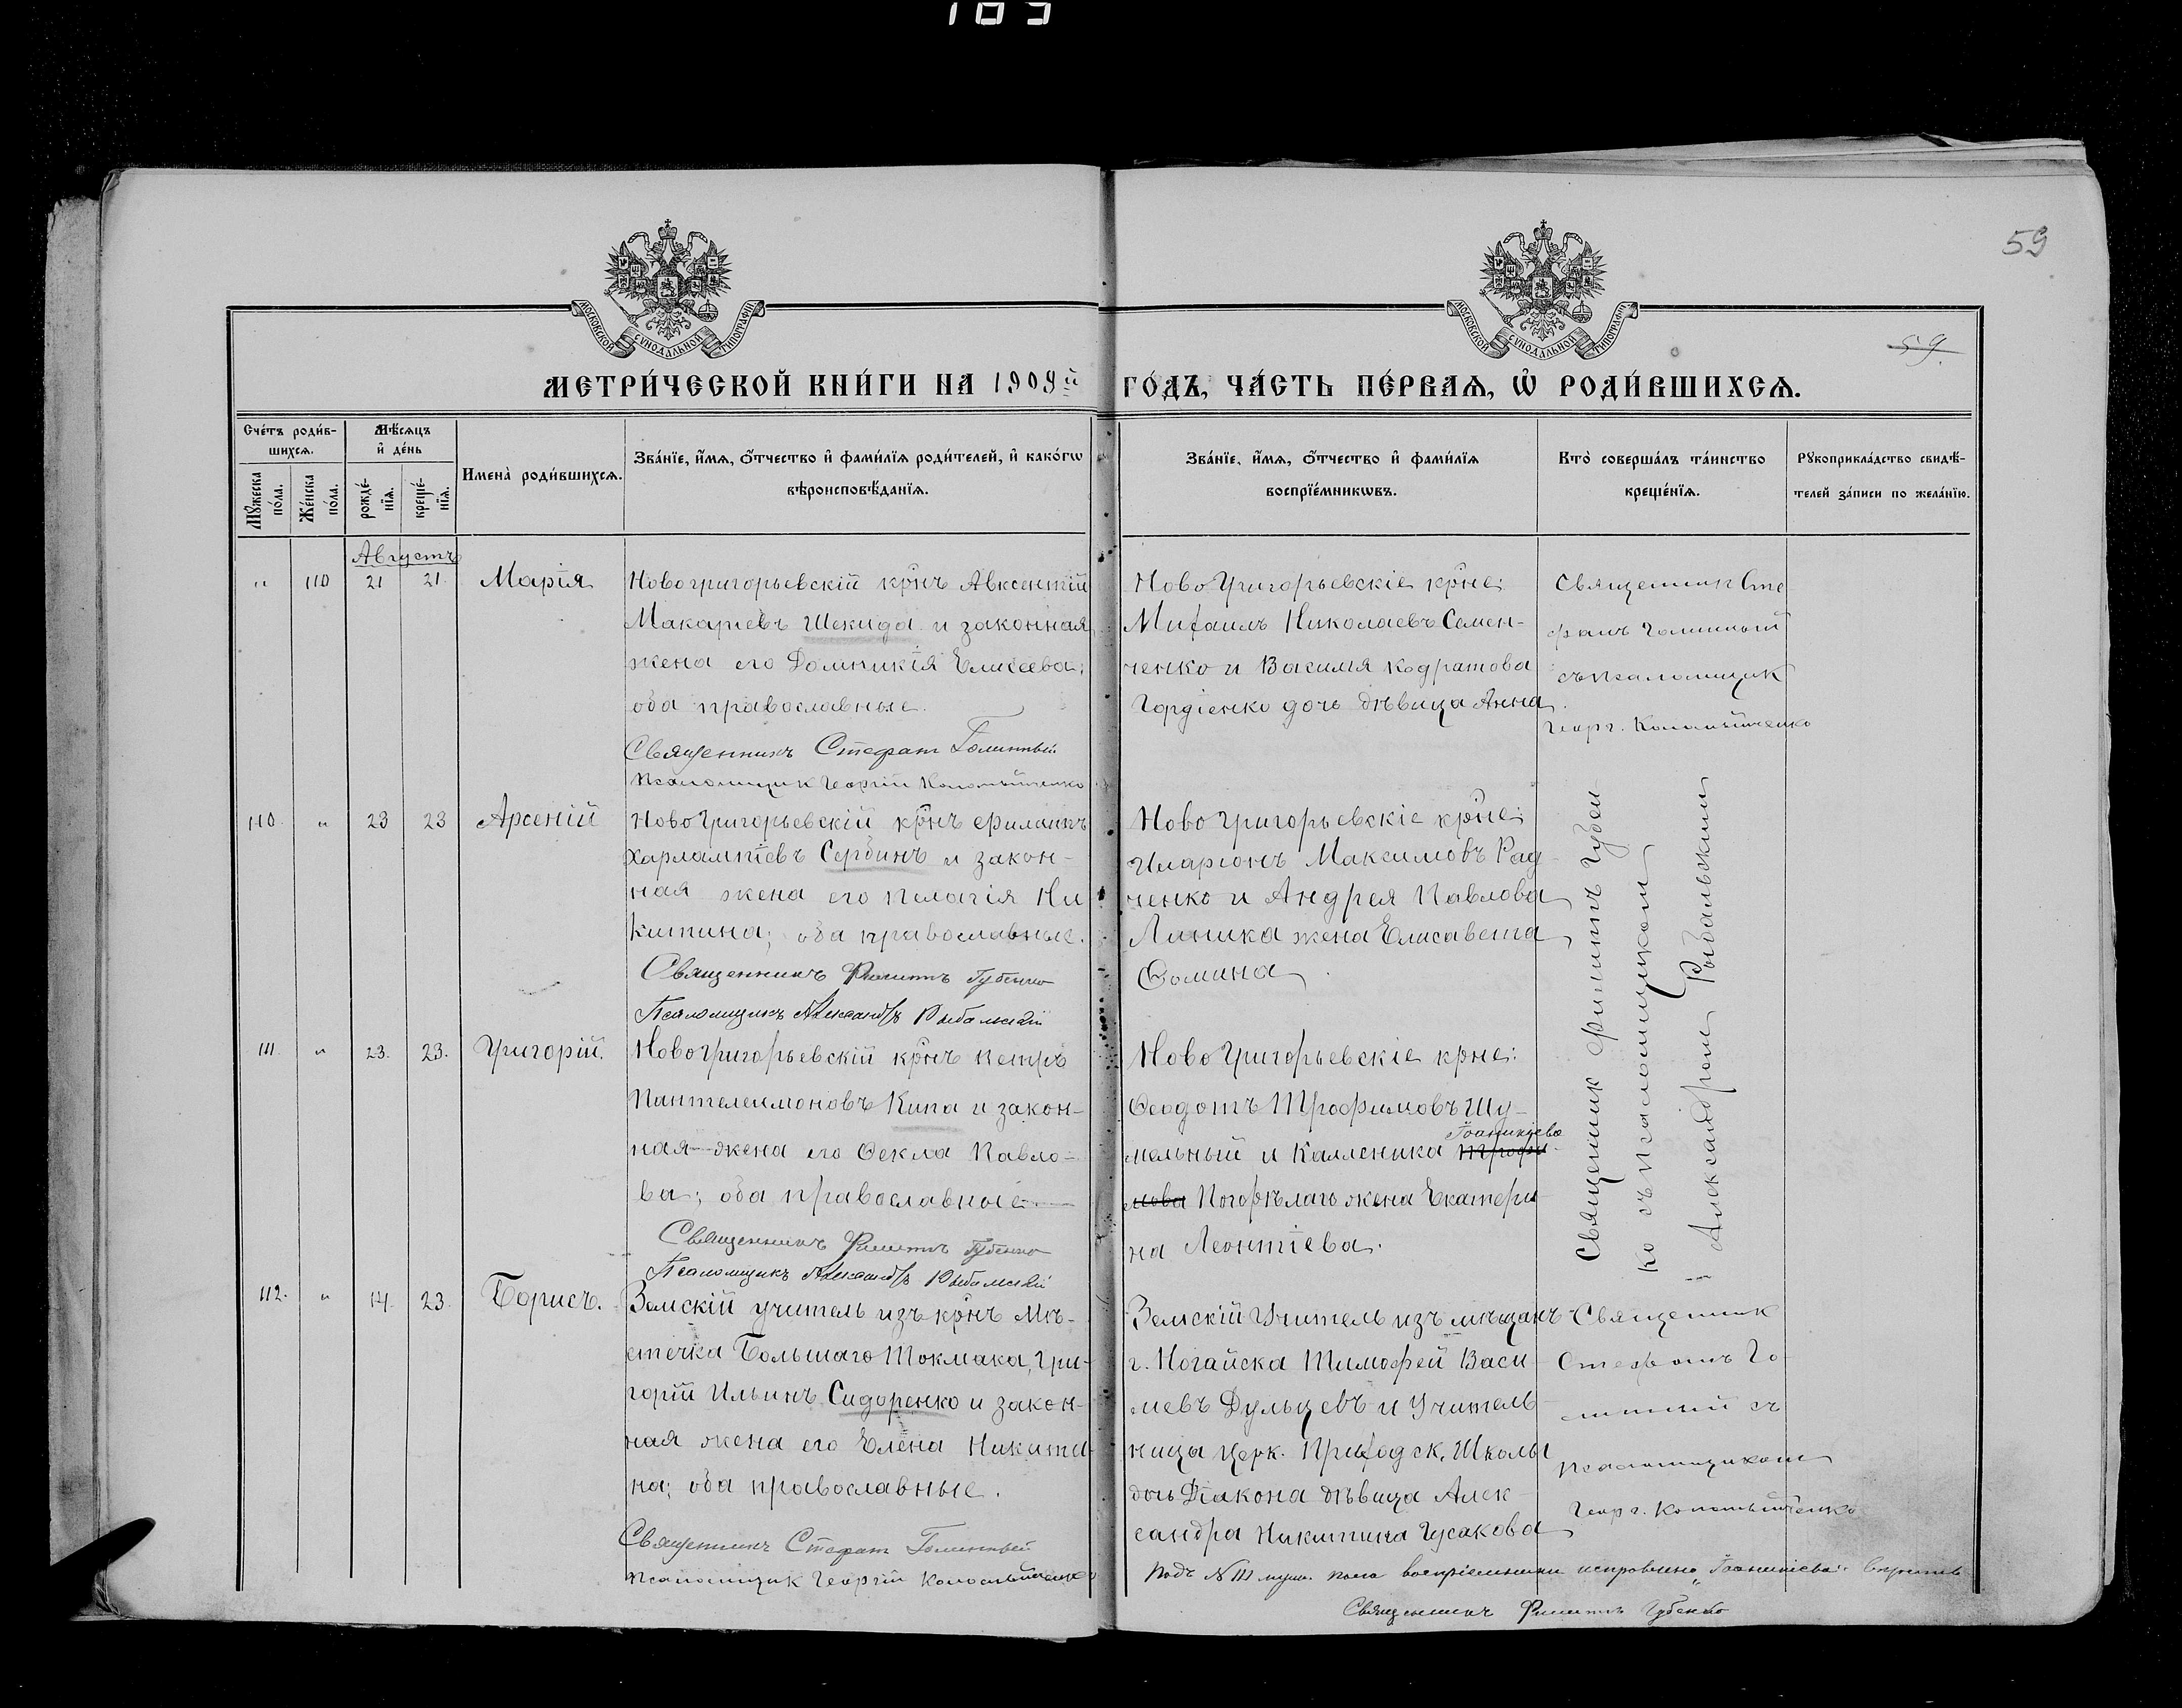 59
59.
МОСКОВСКОЙ СѴНОДАЛЬНОЙ ТИПОГРАФІИ
МОСКОВСКОЙ СѴНОДАЛЬНОЙ ТИПОГРАФІИ
МЕТРИ́ЧЕСКОЙ КНИ́ГИ НА 1909й ГО́ДЪ, ЧА́СТЬ ПЕ́РВАѦ, Ѽ РОДИ́ВШИХСѦ.
Сче́тъ роди́в-
шихсѧ.
Мѣ́сѧцъ
и҆ де́нь
Мꙋ́жеска по́ла.
Же́нска по́ла.
рожде́-
нїѧ.
креще́-
нїѧ.
Имена̀ роди́вшихсѧ.
Зва́нїе, и҆́мѧ, ѻ҆́тчество и҆ фами́лїѧ роди́телей, и҆ како́гѡ
вѣроисповѣ́данїѧ.
Зва́нїе, и҆́мѧ, ѻ҆́тчество и҆ фами́лїѧ
воспрїе́мникѡвъ.
Кто̀ соверша́лъ та́инство
креще́нїѧ.
Рꙋкоприкла́дство свидѣ́-
телей за́писи по жела́нїю.
Августъ
" 110 21 21. Марія
Новогригорьевскій крнъ Авксентій
Макаріевъ Шекида и законная
жена его Домникія Елисеева;
оба православные.
Священникъ Стефанъ Голинный
Псаломщик Георгій Коломыйченко
Новогригорьевскіе крне:
Михаилъ Николаевъ Семен-
ченко и Василія Кодратова
Гордіенко дочь дѣвица Анна.
Священник Сте
фанъ Голинный
съ псаломщик
Георг. Коломыйченко
110. " 23 23 Арсеній
Новогригорьевскій крнъ Филиппъ
Харлампіевъ Сербинъ и закон-
ная жена его Пелагія Ни
китина; оба православные.
Священникъ Филиппъ Губенко
Псаломщикъ Александръ Рыбальскій
Новогригорьевскіе крне:
Иларіонъ Максимовъ Рад-
ченко и Андрея Павлова
Ляшка жена Елисавета
Ѳомина.
Священник Филиппъ Губен
ко съ псаломщиком
Александром Рыбальским
111. " 23. 23. Григорій.
Новогригорьевскій крнъ Петръ
Пантелеимоновъ Кипа и закон-
ная жена его Ѳекла Павло-
ва; оба православные
Священникъ Филиппъ Губенко
Псаломщикъ Александръ Рыбальскій
Новогригорьевскіе крне:
Ѳеодотъ Трофимовъ Шу-
мельный и Каленика Трофи- Іоаникіева
мова Погорѣлаго жена Екатери-
на Леонтіева.
112. " 14. 23. Борисъ.
Земскій учитель изъ крнъ мѣ-
стечка Большаго Токмака, Гри-
горій Ильинъ Сидоренко и закон-
ная жена его Елена Никити-
на; оба православные.
Священникъ Стефанъ Голинный
Псаломщик Георгій Коломыйченко
Земскій Учитель изъ мѣщанъ
г. Ногайска Тимофей Васи-
лієвъ Дульцевъ и Учитель
ницы церк. приходск. Школы
дочь Діакона дѣвица Алек-
сандра Никитина Гусакова
Священник
Стефанъ Го-
линный съ
псаломщиком
Георг. Коломыйченко
Подъ № 111 муж. пола воспріемники исправлено "Іоаникіева".
Священникъ Филиппъ Губенко